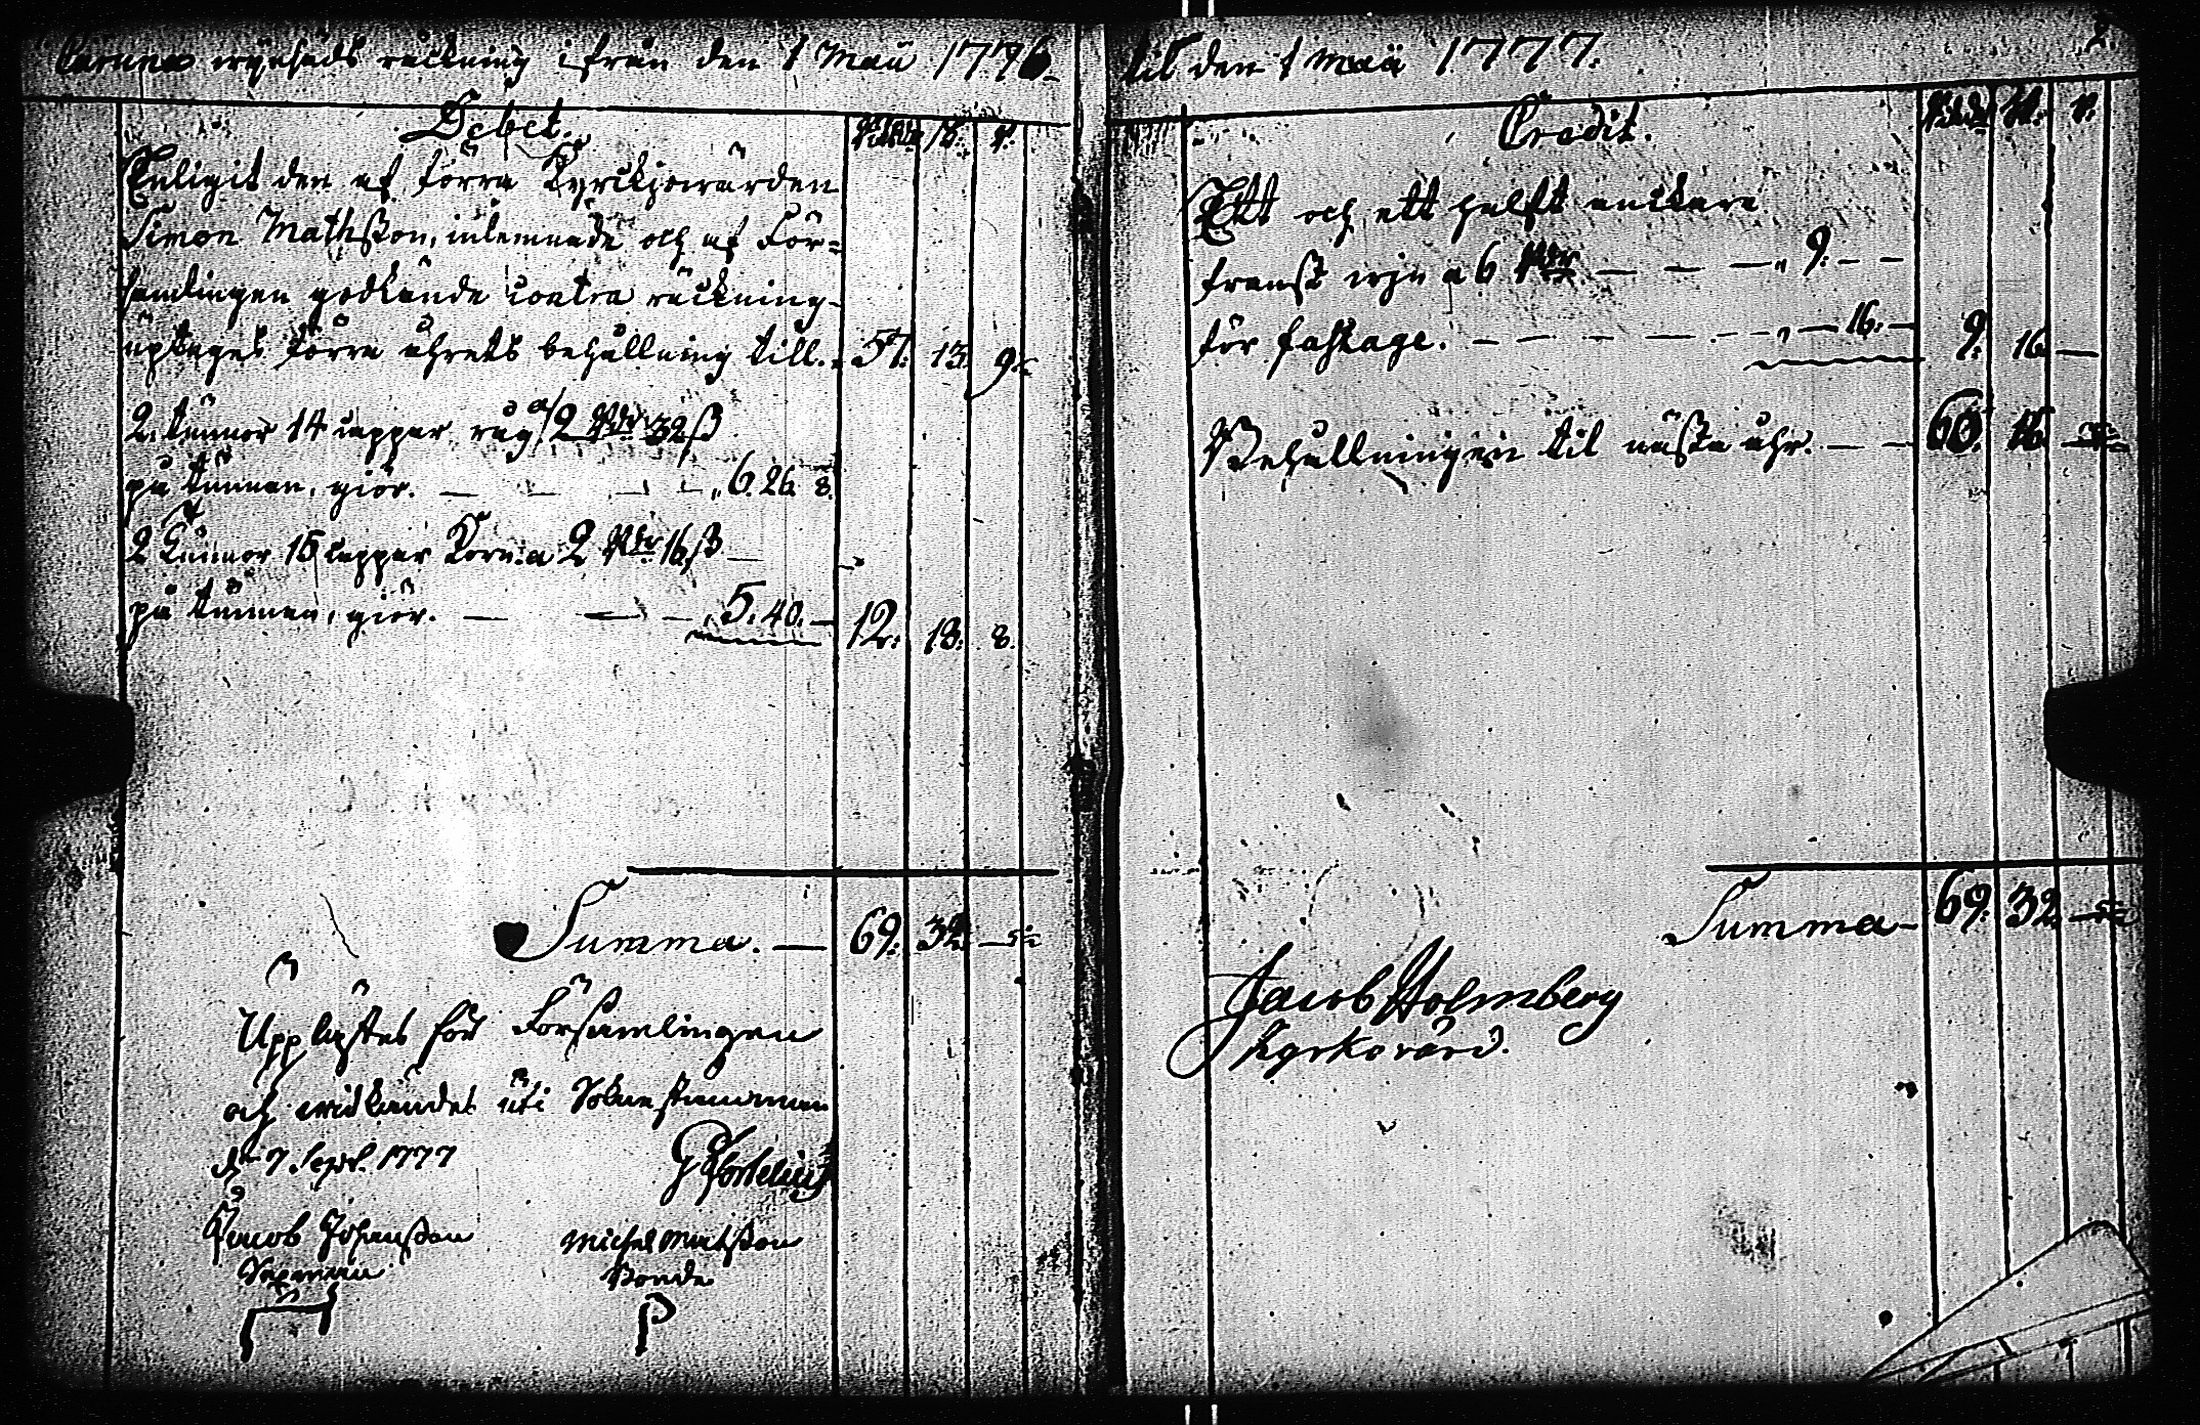 Caruna wijnhåds räckning ifrån den 1 Maii 1776
Debet.
Rdr ß r.
Enligit den af förra Kyrckjowärden
Simon Mathsson, inlemnade och af För=
samlingen godkände contra räckning
uptages förra åhrets behållning till. 57. 13. 9.
2. tunnor 14 cappar råg a 2 Rdr 32 ß
på tunnan, giör. — — — 6. 26. 8.
2 Tunnor 16 cappar Korn a 2 Rdr 16 ß
på tunnan, giör. — — — 5. 40. — 12. 18. 8.
Summa. — 69. 32. 5
Upplästes för Församlingen
och widkändes uti Sokne stämman
d. 7 Sept. 1777
Jacob Johansson
Michel Matsson
Bonde
til den 1 Maii 1777.
2.
Credit.
Rdr ß r.
Ett och ett halft anckare
franst wijn a 6 Rdr — — — 9. — —
för fastage. — — — — — 16. — 9. 16 —
Behållningen til nästa åhr. — — 60. 16
Summa — 69. 32 5
Jacob Holmberg
Kyrkovärd.